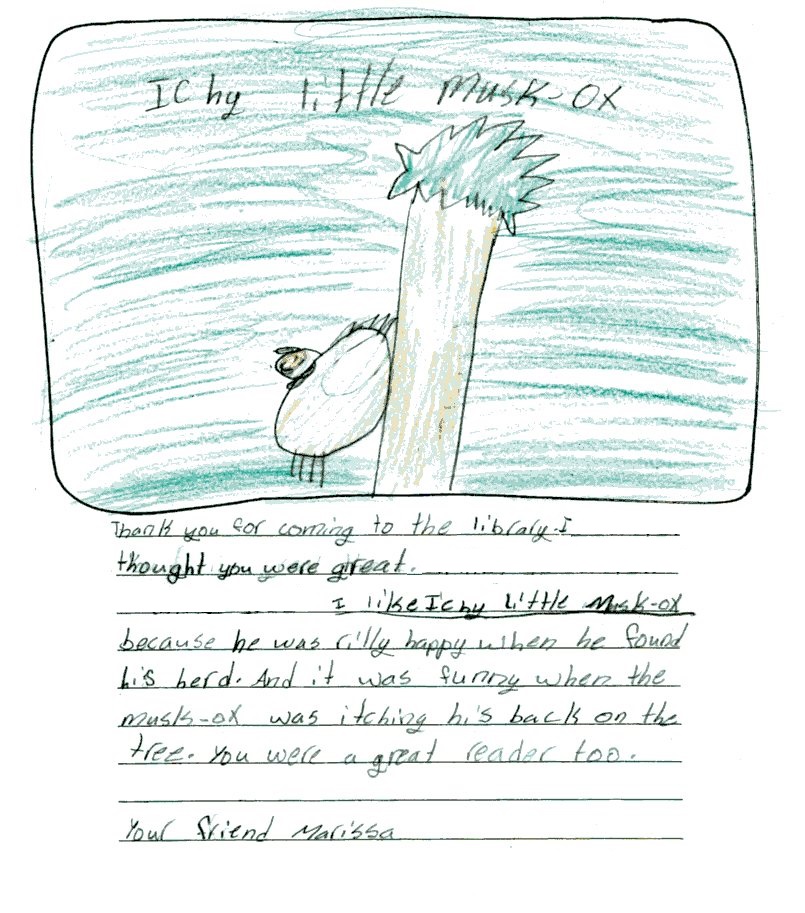 Ichy little Musk-ox
Thank you for coming to the library. I
thought you were great.
I like Ichy little Musk-ox
because he was rilly happy when he found
his herd. And it was funny when the
musk-ox was itching his back on the
tree. You were a great reader too.
Your friend Marissa